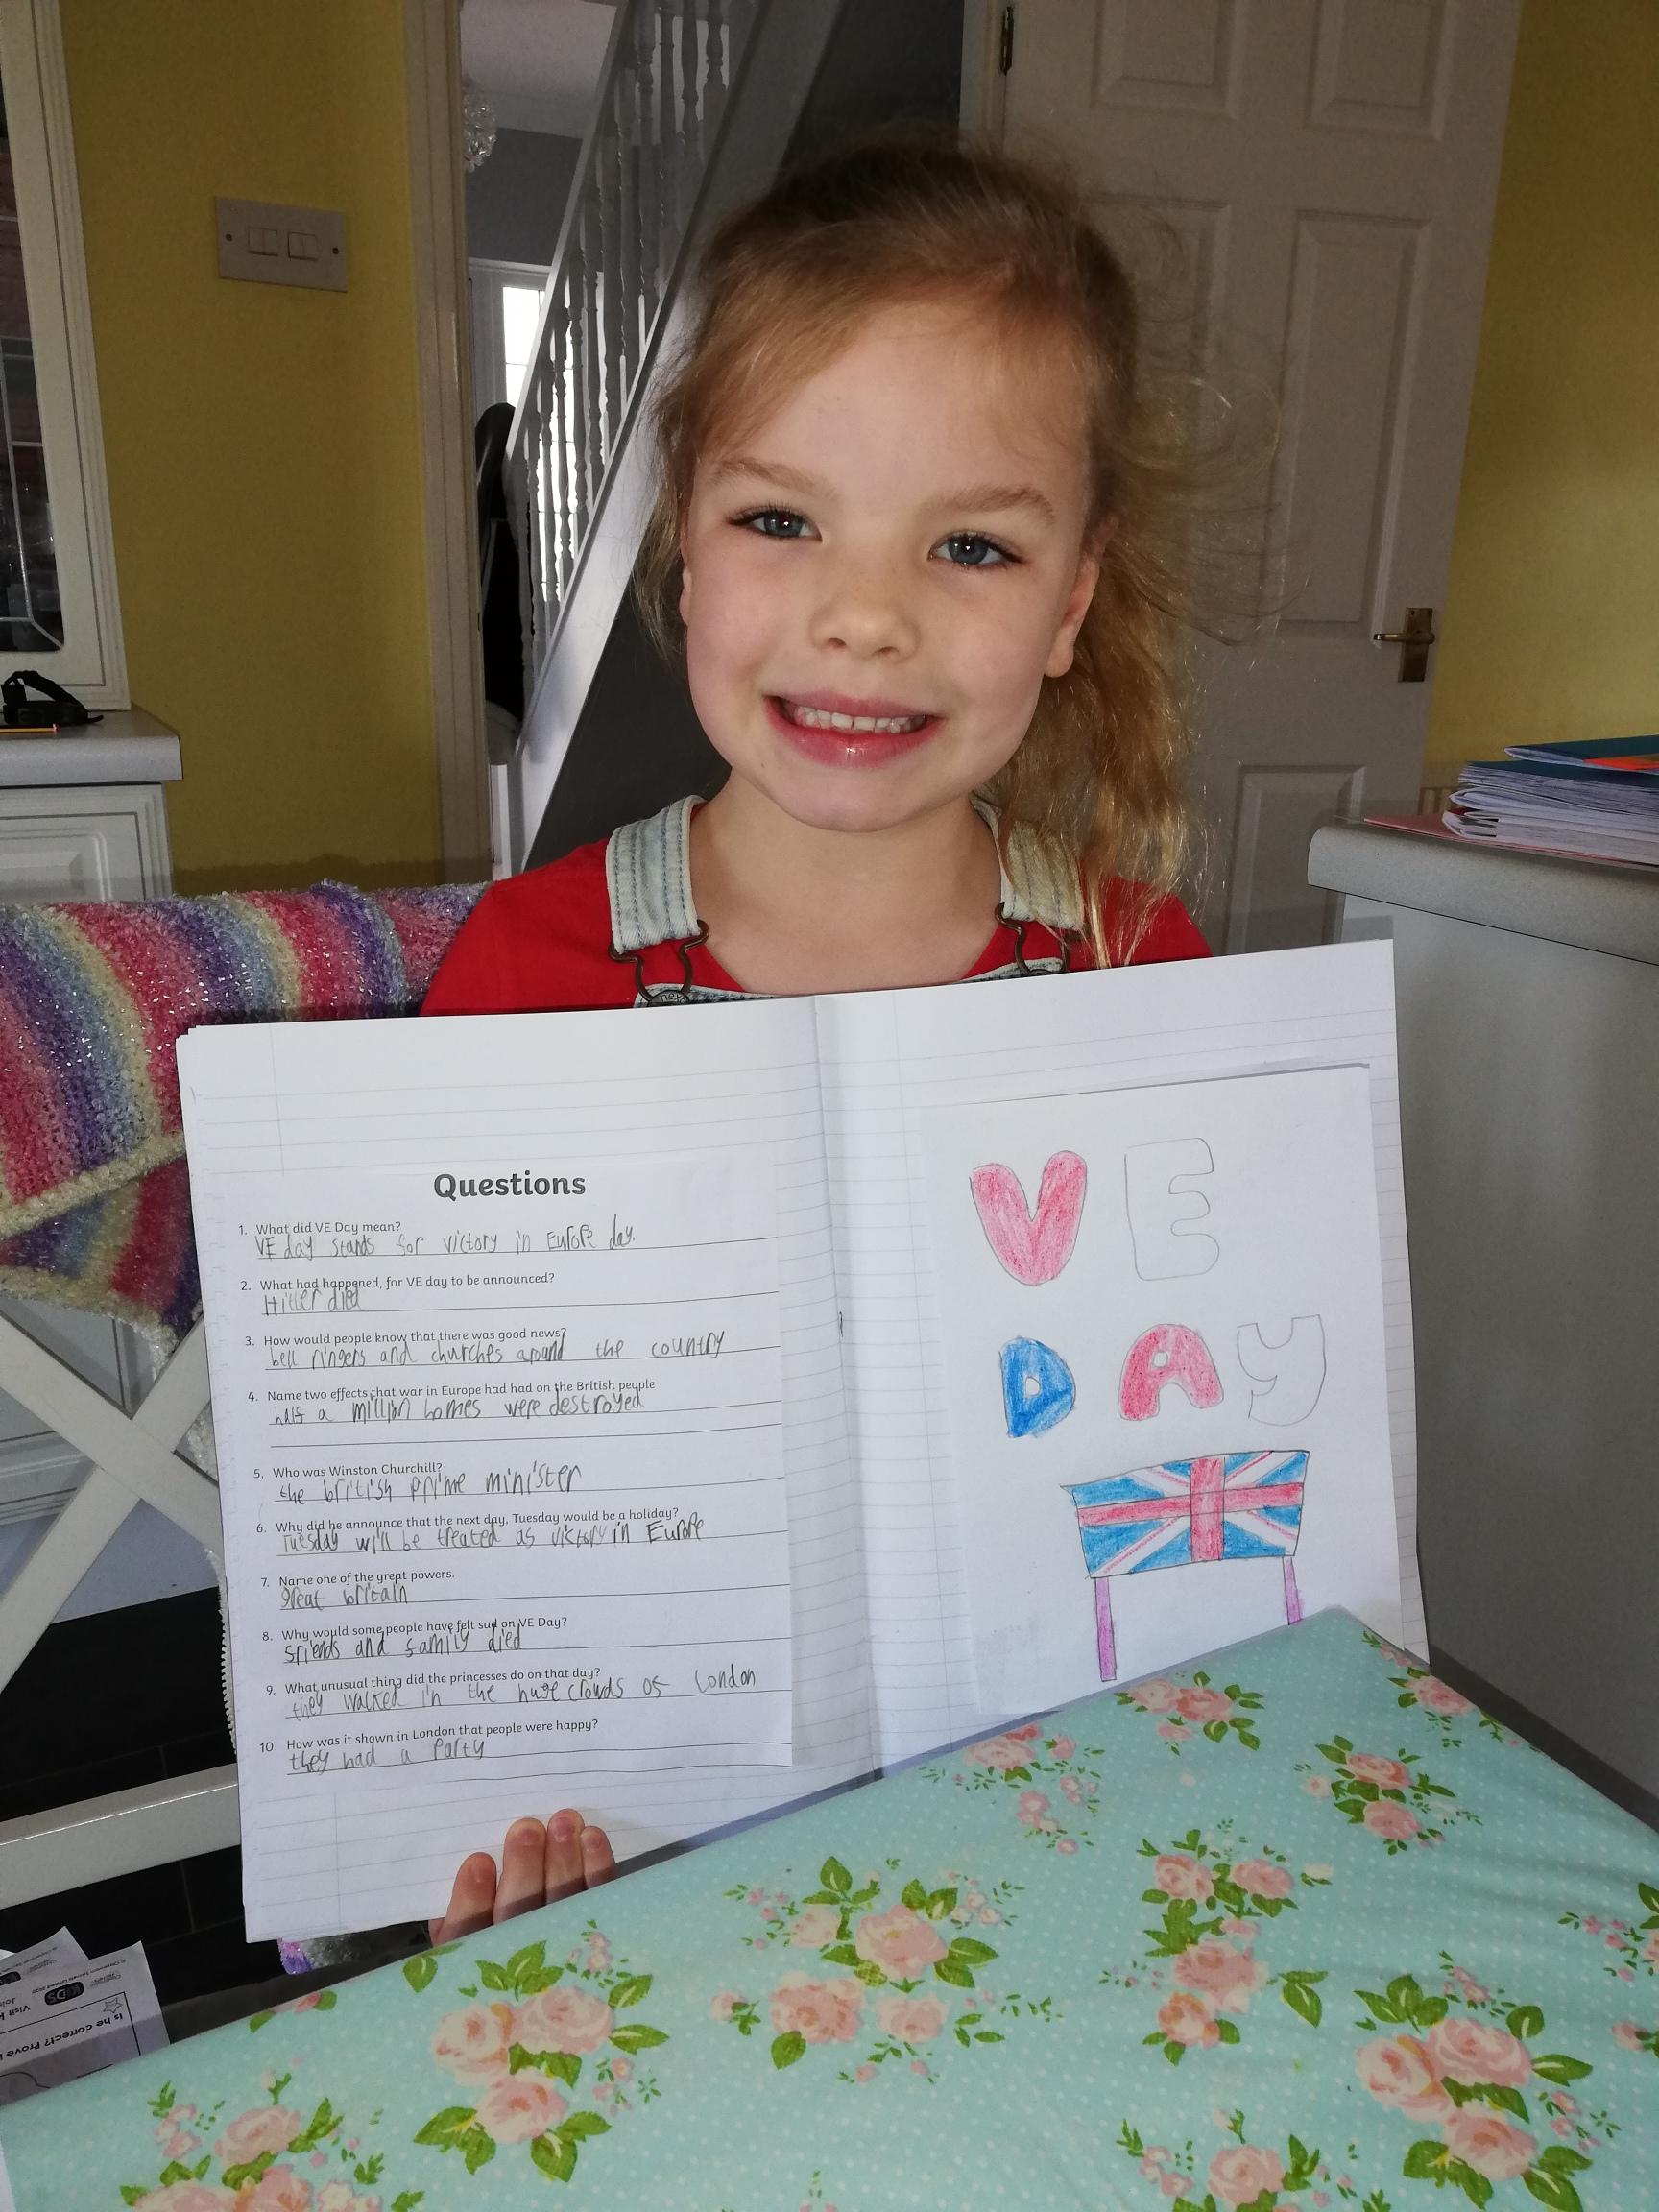 Questions
1. What did VE Day mean?
VE day stands for victory in Europe day.
2. What had happened, for VE day to be announced?
Hitler died
3. How would people know that there was good news?
bell ringers and churches around the country
4. Name two effects that war in Europe had had on the British people
half a million homes were destroyed
5. Who was Winston Churchill?
the british prime minister
6. Why did he announce that the next day, Tuesday would be a holiday?
Tuesday will be treated as victory in Europe
7. Name one of the great powers.
great britain
8. Why would some people have felt sad on VE Day?
friends and family died
9. What unusual thing did the princesses do on that day?
they walked in the huge crowds of London
10. How was it shown in London that people were happy?
they had a party
VE
DAY
Is he correct? Prove
Visit